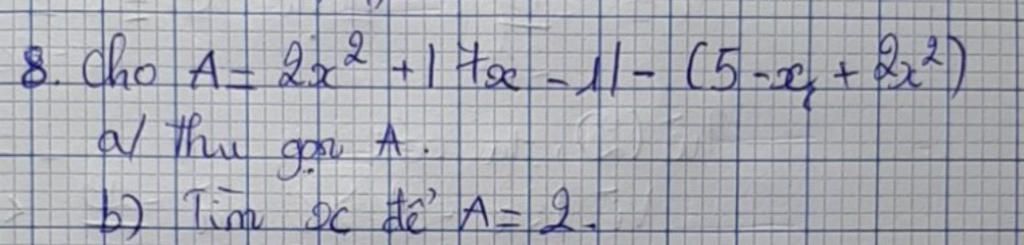 8. Cho A = 2x² + |7x - 1| - (5 - x + 2x²)
a/ Thu gọn A.
b) Tìm x để A = 2.